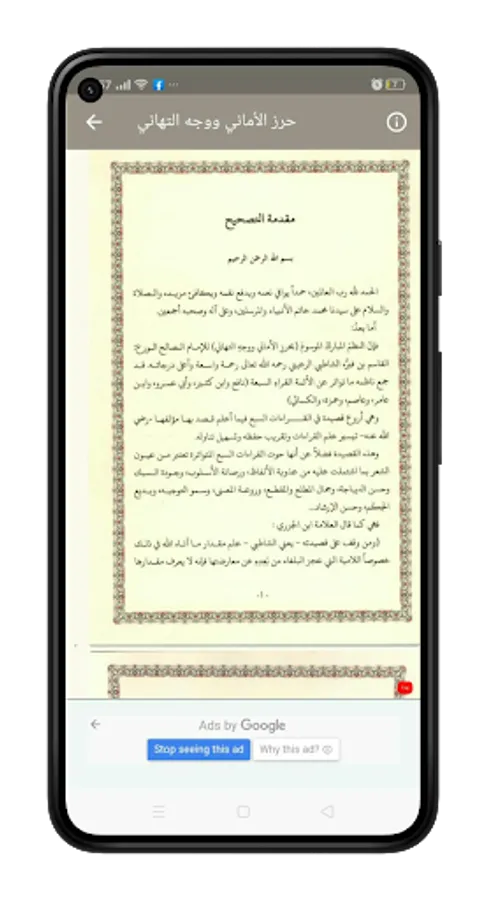 حرز الأماني ووجه التهاني
مقدمة التصحيح
بسم الله الرحمن الرحيم
الحمد لله رب العالمين، حمداً يوافي نعمه ويدفع نقمه ويكافئ مزيده، والصلاة
والسلام على سيدنا محمد خاتم الأنبياء والمرسلين، وعلى آله وصحبه أجمعين.
أما بعد:
فإن النظم المبارك الموسوم (بحرز الأماني ووجه التهاني) للإمام الصالح الورع:
القاسم بن فيرُّه الشاطبي الرعيني رحمه الله تعالى رحمة واسعة وأعلى درجاته. قد
جمع ناظمه ما تواتر عن الأئمة القراء السبعة (نافع وابن كثير، وأبي عمرو، وابن
عامر، وعاصم، وحمزة، والكسائي)
وهي أروع قصيدة في القراءات السبع فيما أعلم قصد بها مؤلفها -رضي
الله عنه- تيسير علم القراءات وتقريب حفظه وتسهيل تناوله.
وهذه القصيدة فضلاً عن أنها حوت القراءات السبع المتواترة تعتبر من عيون
الشعر بما اشتملت عليه من عذوبة الألفاظ، ورصانة الأسلوب، وجودة السبك
وحسن الديباجة، وجمال المطلع والمقطع، وروعة المعنى، وسمو التوجيه، وبديع
الحكم، وحسن الإرشاد..
فهي كما قال العلامة ابن الجزري :
(ومن وقف على قصيدته - يعني الشاطبي - علم مقدار ما أتاه الله في ذلك
خصوصاً اللامية التي عجز البلغاء من بعده عن معارضتها فإنه لا يعرف مقدارها
Ads by Google
Stop seeing this ad
Why this ad?